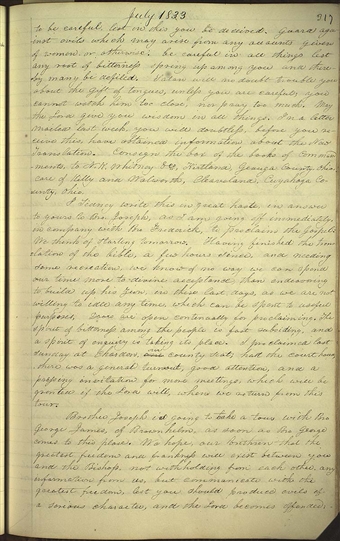 July 1833
317
to be careful, lest in this you be deceived. Guard aga
inst evils which may arise from any accounts given
of women, or otherwise. be careful in all things lest
any root of bitterness spring up among you and there
by many be defiled. Satan will no doubt trouble you
about the gift of tongues, unless you are careful; you
cannot watch him too close, nor pray too much. May
the Lord give you wisdom in all things. In a letter
mailed last week, you will doubtless, before you re
ceive this, have obtained information about the New
Translation. Consign the box of the books of Command
ments, to N. K. Whitney & Co, Kirtland, Geauga County Ohio,
care of Kelly and Walworth, Cleaveland, Cuyahoga Co
unty, Ohio.
I, Sidney write this in great haste, in answer
to yours to Bro. Joseph, as I am going off immediately,
in company with Bro. Frederick, to proclaim the Gospel;
We think of starting tomorrow. Having finished the trans
lation of the bible, a few hours since, and needing
some recreation, we know of no way we can spend
our time more to divine acceptance, than endeavoring
to build up his Zion in these last days, as we are not
willing to idle any time, which can be spent to useful
purposes. Doors are open continually for proclaiming. The
spirit of bitterness among the people is fast subsiding, and
a spirit of enquiry is taking its place. I proclaimed last
sunday at Chardon, our county seat; had the court house,
there was a general turnout, good attention, and a
pressing invitation for more meetings, which will be
granted if the Lord will, when we return from this
tour.
Brother Joseph is going to take a tour with Bro
George James, of Brownhelm, as soon as Bro George
comes to this place. We hope, our brethren that the
greatest freedom and frankness will exist between you
and the Bishop, not withholding from each other any
information from us, but communicate with the
greatest freedom, lest you should produce evils of
a serious character, and the Lord becomes offended.